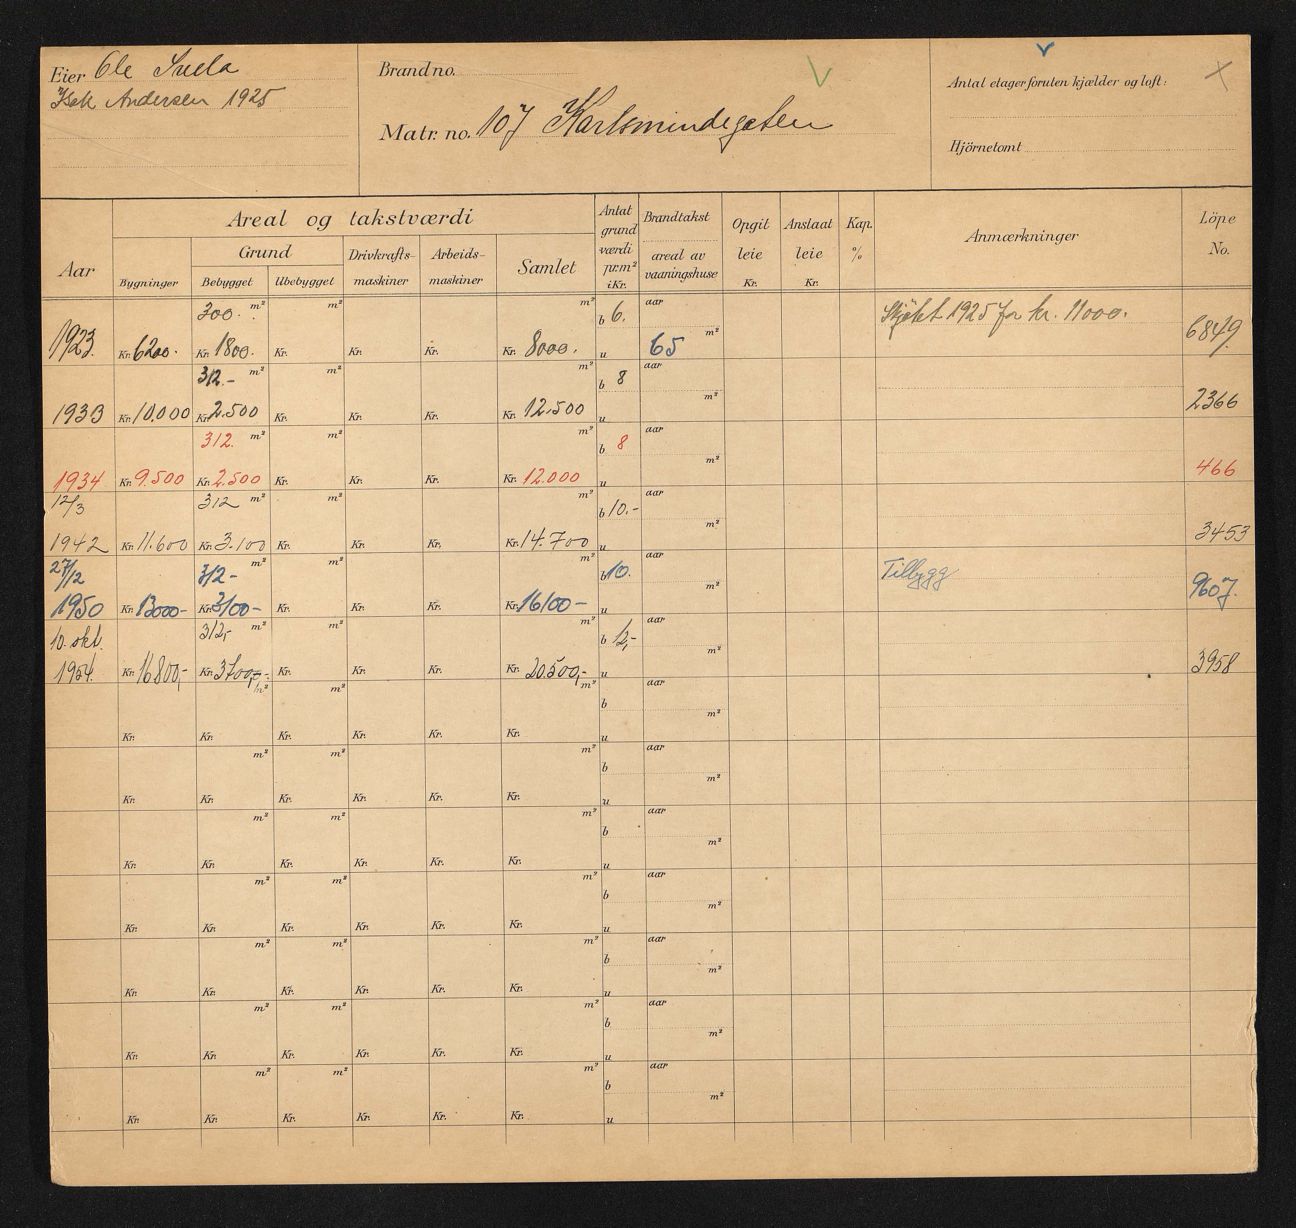 Eier Ole Svela
Isak Andersen 1925
Brand no.
Matr. no. 107 Karlsmindegaten
Antal etager foruten kjælder og loft:
Hjörnetomt
Aar
Areal og takstværdi
Bygninger
Grund
Bebygget
Ubebygget
Drivkrafts-
maskiner
Arbeids-
maskiner
Samlet
Antat
grund
værdi
pr.m²
i Kr.
Brandtakst
areal av
vaaningshuse
Opgit
leie
Kr.
Anslaat
leie
Kr.
Kap.
%
Anmærkninger
Löpe
No.
300. m² m² m² b 6. aar Skjøtet 1925 for kr. 11000.
1923. Kr. 6200. Kr. 1800. Kr. Kr. Kr. Kr. 8000. u 65 m² 6849.
312.- m² m² m² b 8 aar
1933 Kr. 10.000 Kr. 2.500 Kr. Kr. Kr. Kr. 12.500 u m² 2366
312. m² m² m² b 8 aar
1934 Kr. 9.500 Kr. 2.500 Kr. Kr. Kr. Kr. 12.000 u m² 466
12/3 312 m² m² m² b 10.- aar
1942 Kr. 11.600 Kr. 3.100 Kr. Kr. Kr. Kr. 14.700 u m² 3453
27/12 312- m² m² m² b 10. aar Tilbygg
1950 Kr. 13000- Kr. 3100- Kr. Kr. Kr. Kr. 16100- u m² 9607.
10. okt. 312,- m² m² m² b 12,- aar
1954. Kr. 16800,- Kr. 3700,- Kr. Kr. Kr. Kr. 20.500,- u m² 3958
m² m² m² b aar
Kr. Kr. Kr. Kr. Kr. Kr. u m²
m² m² m² b aar
Kr. Kr. Kr. Kr. Kr. Kr. u m²
m² m² m² b aar
Kr. Kr. Kr. Kr. Kr. Kr. u m²
m² m² m² b aar
Kr. Kr. Kr. Kr. Kr. Kr. u m²
m² m² m² b aar
Kr. Kr. Kr. Kr. Kr. Kr. u m²
m² m² m² b aar
Kr. Kr. Kr. Kr. Kr. Kr. u m²
m² m² m² b aar
Kr. Kr. Kr. Kr. Kr. Kr. u m²